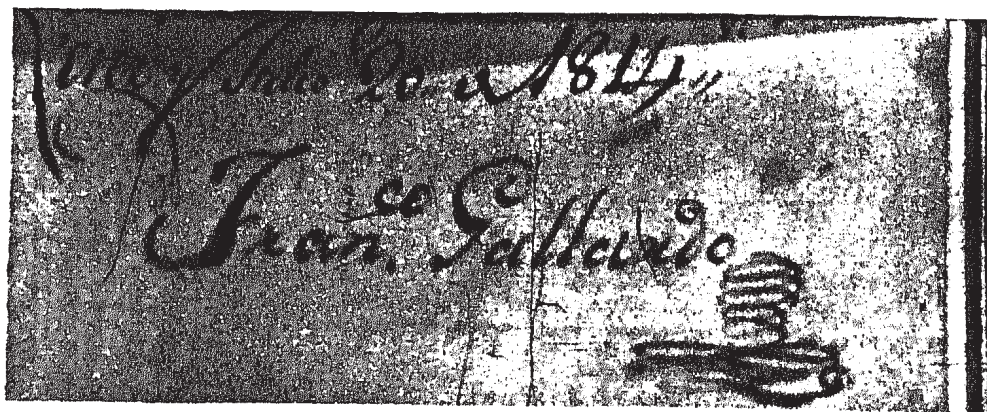 Julio 20. de 1814,,
Fran.co Gallardo